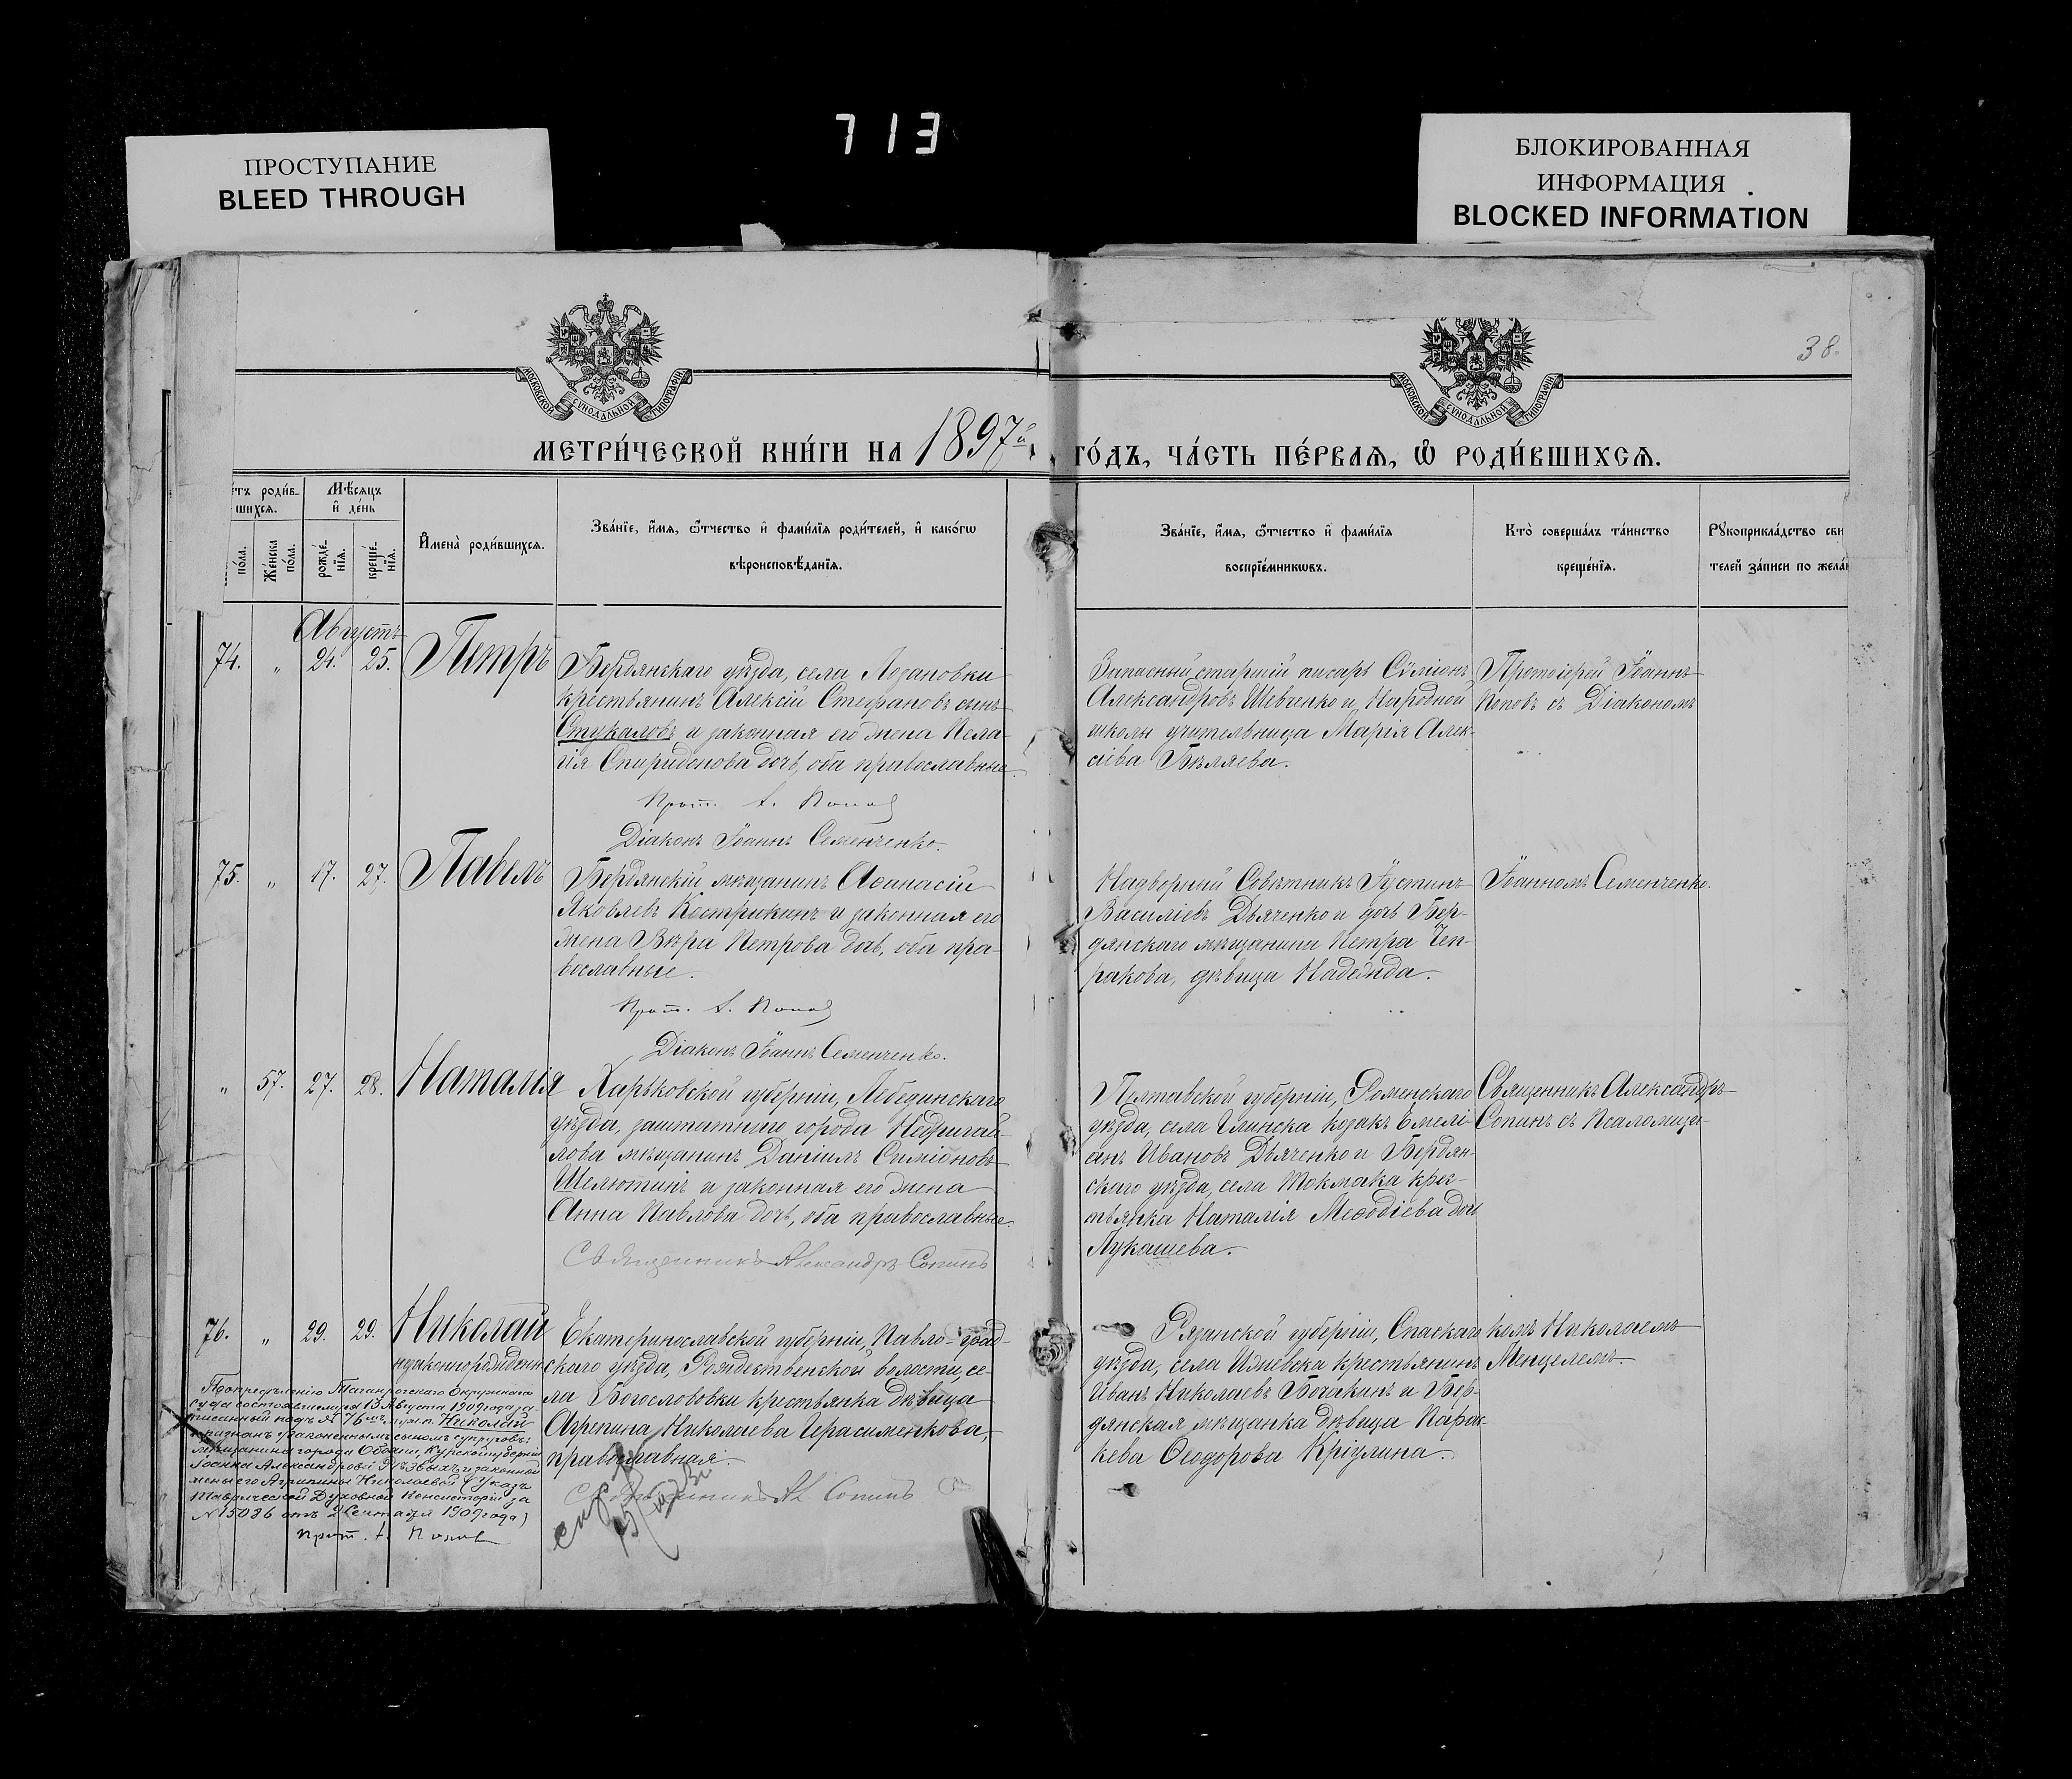 713
ПРОСТУПАНИЕ
BLEED THROUGH
БЛОКИРОВАННАЯ
ИНФОРМАЦИЯ
BLOCKED INFORMATION
38.
МОСКОВСКОЙ СУНОДАЛЬНОЙ ТИПОГРАФІИ
МОСКОВСКОЙ СУНОДАЛЬНОЙ ТИПОГРАФІИ
МЕТРИ́ЧЕСКОЙ КНИ́ГИ НА 1897й
ГО́ДЪ, ЧА́СТЬ ПЕ́РВАѦ, Ѡ҆ РОДИ́ВШИХСѦ.
е́тъ роди́в-
шихсѧ.
Мѣ́сѧцъ
и҆ де́нь
по́ла.
Же́нска
по́ла.
рожде́-
нїѧ.
креще́-
нїѧ.
И҆мена̀ роди́вшихсѧ.
Зва́нїе, и҆́мѧ, ѻ҆́тчество и҆ фами́лїѧ роди́телей, и҆ како́гѡ
вѣроисповѣ́данїѧ.
Зва́нїе, и҆́мѧ, ѻ҆́тчество и҆ фами́лїѧ
воспрїе́мникѡвъ.
Кто̀ соверша́лъ та́инство
креще́нїѧ.
Рꙋкоприкла́дство сви
телей за́писи по жела́
Августъ
74. " 24. 25. Петръ
Бердянскаго уѣзда, села Лозановки
крестьянинъ Алексій Стефановъ сынъ
Стукаловъ и законная его жена Пела-
гія Спиридонова дочь, оба православные.
Прот. І. Попов
Діаконъ Іоаннъ Семенченко.
Запасный старшій писарь Сѵмеонъ
Александровъ Шевченко и Народной
школы учительница Марія Алек-
сіева Бѣляева.
Протоіерей Іоаннъ
Поповъ съ Діакономъ
75. " 17. 27. Павелъ
Бердянскій мѣщанинъ Аѳанасій
Яковлевъ Кострикинъ и законная его
жена Вѣра Петрова дочь, оба пра-
вославные.
Прот. І. Попов
Діаконъ Іоаннъ Семенченко.
Надворный Совѣтникъ Іустинъ
Василіевъ Дьяченко и дочь Бер-
дянскаго мѣщанина Петра Чеп-
ракова, дѣвица Надежда.
Іоанномъ Семенченко.
" 57. 27. 28. Наталія
Харьковской губерніи, Лебединскаго
уѣзда, заштатнаго города Недригай-
лова мѣщанинъ Даніилъ Симеоновъ
Шелютинъ и законная его жена
Анна Павлова дочь, оба православные.
Священникъ Александръ Сопинъ
Полтавской губерніи, Роменскаго
уѣзда, села Глинска козакъ Емели-
анъ Ивановъ Дьяченко и Бердян-
скаго уѣзда, села Токмака крес-
тьянка Наталія Меѳодіева дочь
Лукашева.
Священникъ Александръ
Сопинъ съ Псаломщи-
76. " 29. 29. Николай
незаконнорожденн
Екатеринославской губерніи, Павло-град-
скаго уѣзда, Рождественской волости, се-
ла Богослововки крестьянка дѣвица
Агрепина Николаева Герасименкова,
православная.
Священникъ Ал Сопинъ
Рязанской губерніи, Спаскаго
уѣзда, села Ижевска крестьянинъ
Иванъ Николаевъ Бочакинъ и Бер-
дянская мѣщанка дѣвица Парас-
кева Ѳеодорова Крідлина.
комъ Николаемъ
Менцелемъ.
По опредѣленію Таганрогскаго Окружнаго
Суда состоявшемуся 13 Августа 1909 года за-
писанный подъ № 76мъ муж. п. Николай
признанъ узаконеннымъ сыномъ супруговъ:
мѣщанина города Обояни, Курской губерніи
Іоанна Александрова Рѣзвыхъ и законной
жены его Агрипины Николаевой (Указъ
Таврической Духовной Консисторіи за
№ 15086 отъ 2 Сентября 1909 года)
Прот. І. Попов